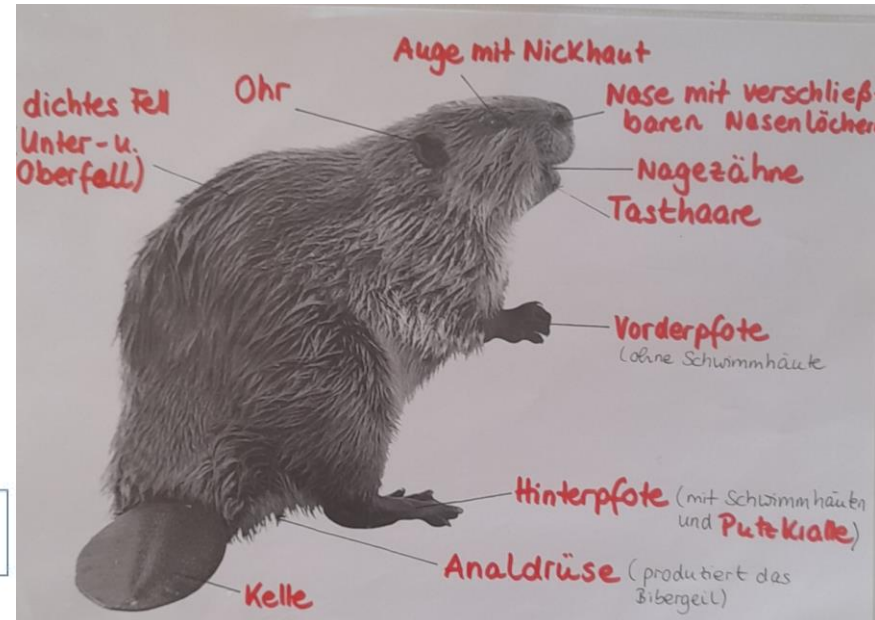 Auge mit Nickhaut
Ohr
dichtes Fell
Unter- u.
Oberfell)
Nase mit verschließ-
baren Nasenlöcher
Nagezähne
Tasthaare
Vorderpfote
(ohne Schwimmhäute
Hinterpfote (mit Schwimmhäuten
und Putzkralle)
Analdrüse (produziert das
Bibergeil)
Kelle